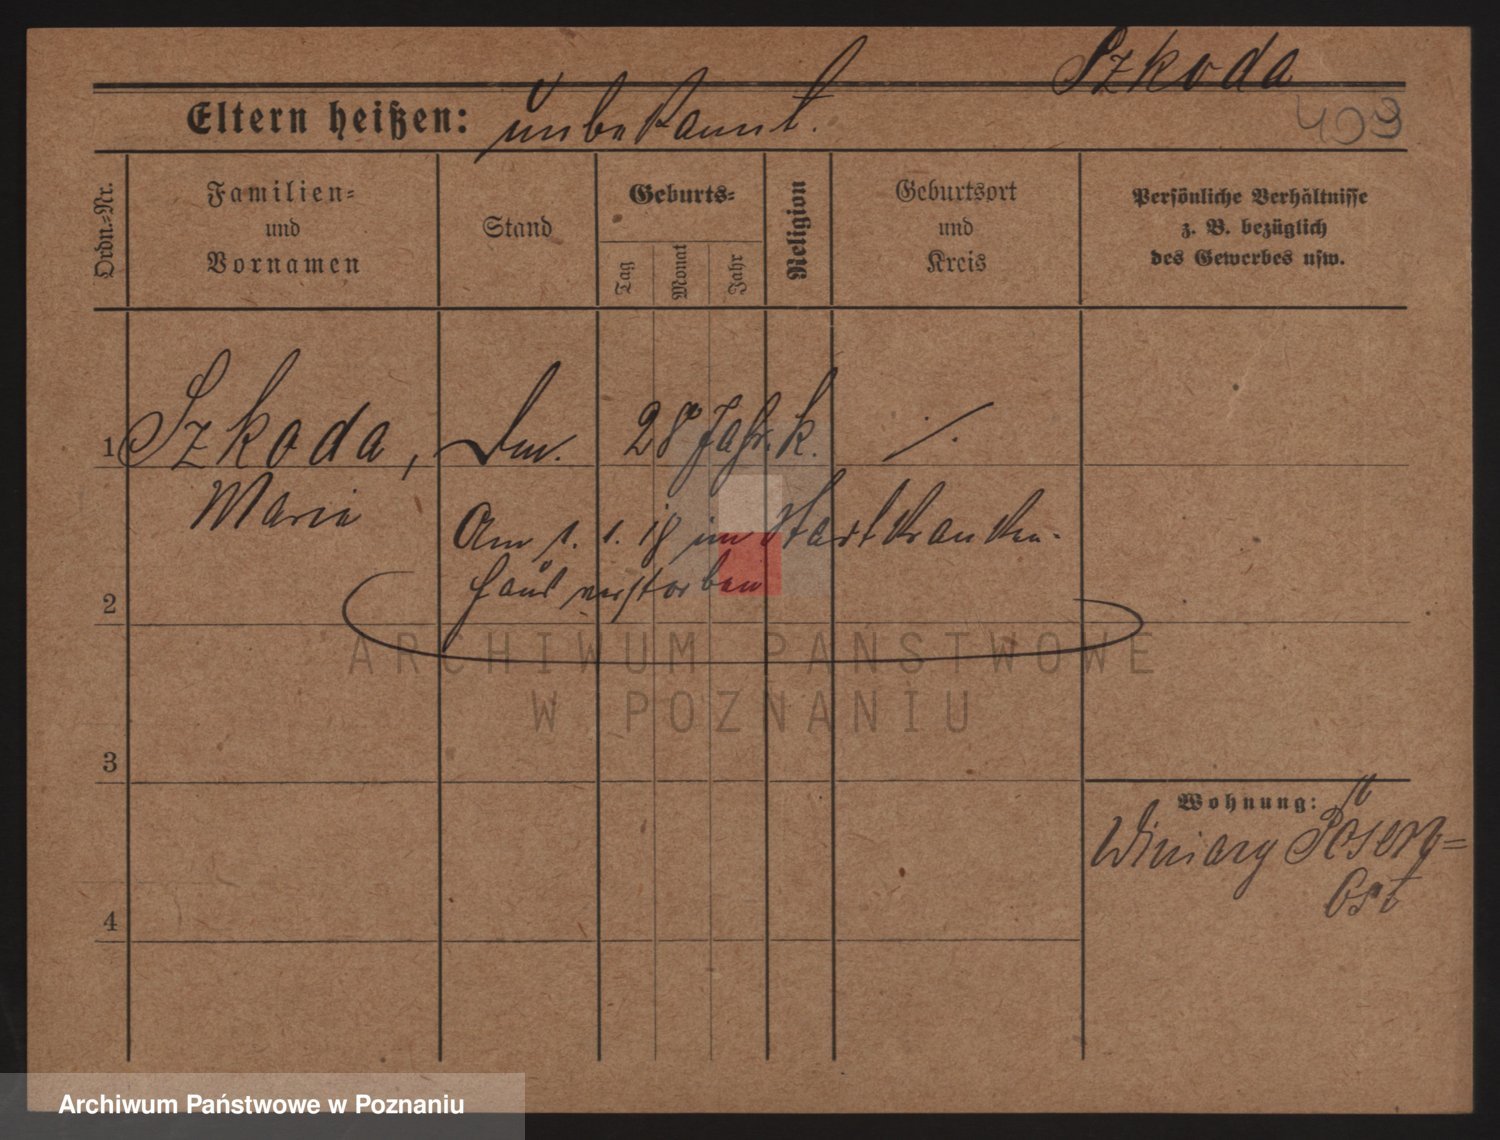 Szkoda
409
Eltern heißen: unbekannt.
Ordn.=Nr.
Familien=
und
Vornamen
Stand
Geburts=
Tag
Monat
Jahr
Religion
Geburtsort
und
Kreis
Persönliche Verhältnisse
z. B. bezüglich
des Gewerbes usw.
1 Szkoda, 28 Jahr. k. ./.
Maria
Am 1. 1. 18 im Stadtkranken-
2 haus verstorben
ARCHIWUM PAŃSTWOWE
W POZNANIU
3
Wohnung:
Winiary Posen=
Ost
4
Archiwum Państwowe w Poznaniu